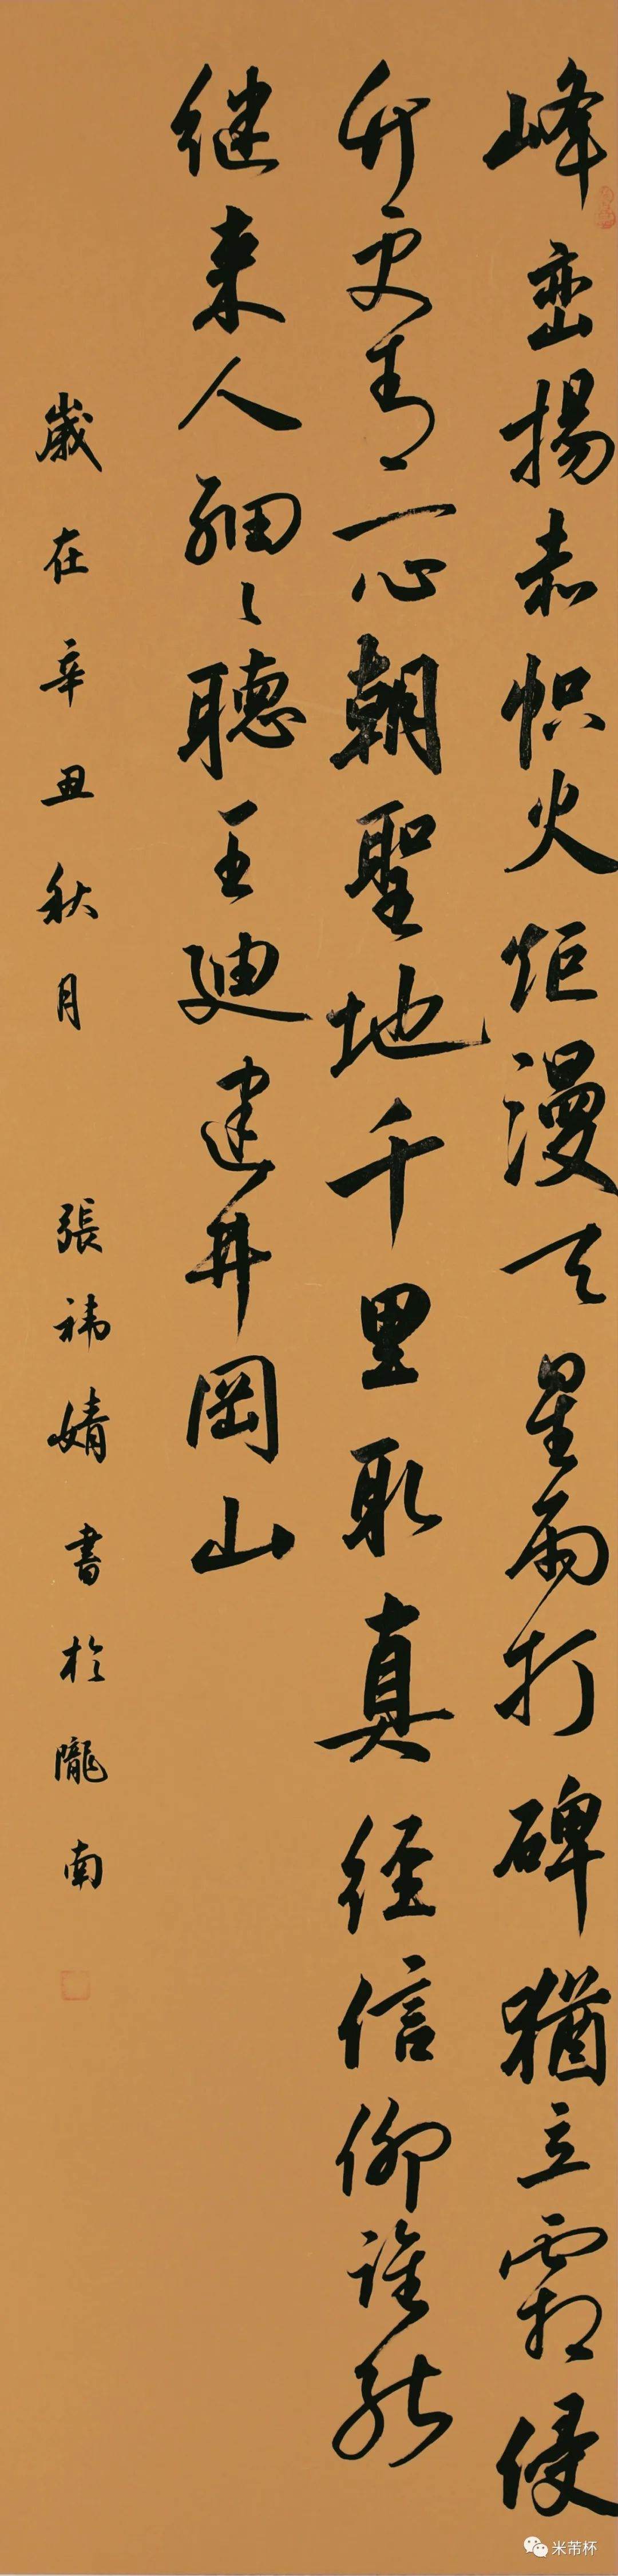 峰峦揚赤帜火炬漫天星雨打碑猶立霜侵
竹更青一心朝聖地千里取真经信仰谁能
继来人细々聽王迪建井岡山
歲在辛丑秋月 張祎婧書於隴南
米芾杯